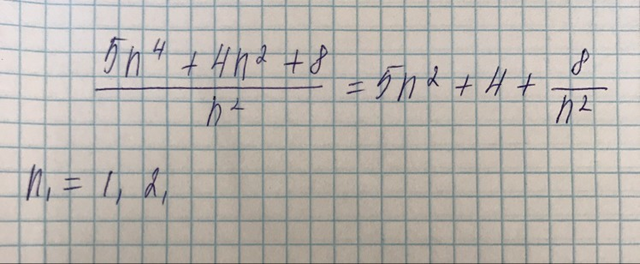 (5n⁴ + 4n² + 8)/n² = 5n² + 4 + 8/n²
n₁ = 1, 2,